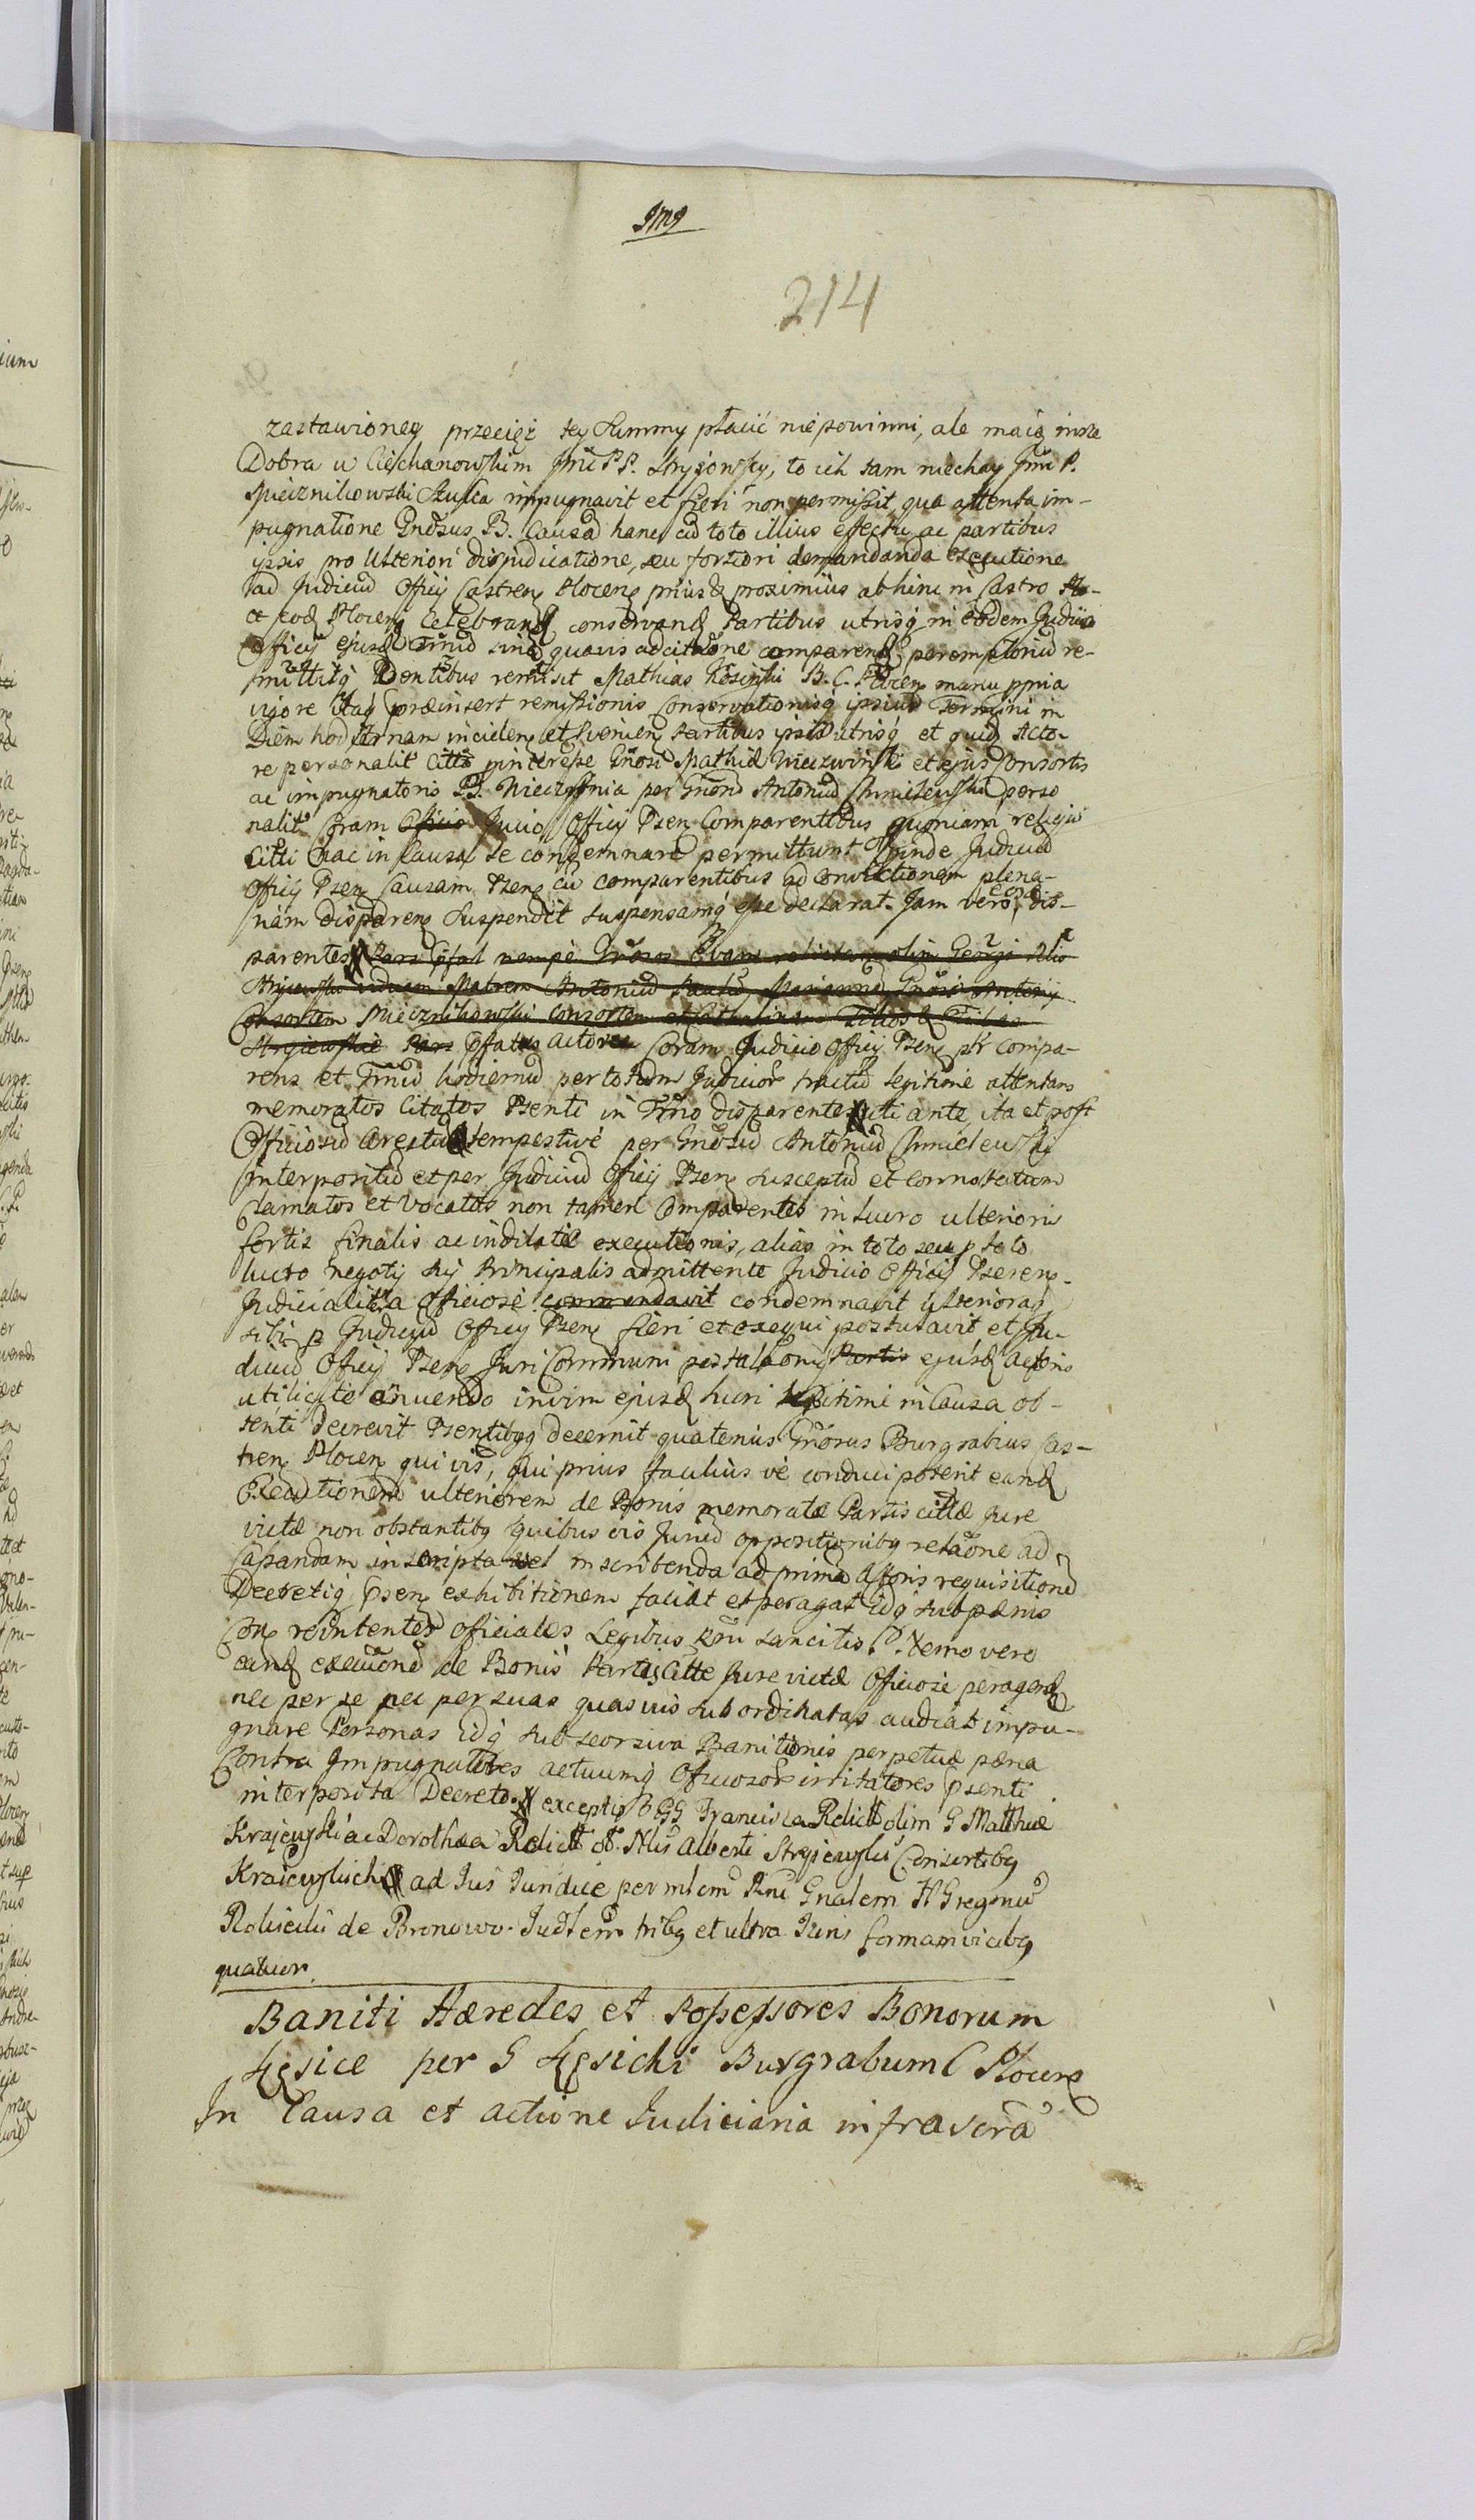 JMJ
214
zastawioney przecięż tey Summy płacić niepowinni, ale maią insze
Dobra w Ciechanowskim Jmć PP. Stryjowscy, to ich tam niechay Jmć P.
Miecznikowski Szuka impugnavit et fieri non permisit, qua attenta im-
pugnatione Gnosus B. Causã hanc cũ toto illius effectu ac partibus
ipsis pro Ulteriori disjudicatione, seu fortiori demandanda executione
ad Judiciũ Officij Castren Plocen prius & proximius abhinc in Castro
Plocen Celebrand conservand Partibus utrisq in eodem Judicio
Officij ejusd Trmũ sine quavis adcitaõne comparend peremptoriũ re-
mittitq Pentibus remisit Mathias Kosinski B. C. Plocen manu ppria
vigore Itaq præinsert remissionis Conservationisq ipsius Termini in
Diem hodiernam inciden et venien Partibus ipsis utrisq et quid Acto-
re personalit Citti Gnosi Mathiæ Niezwiński et ejus Consortis
ac impugnatoris per Gnosũ Antoniũ Chmielewski perso
nalit Coram Officio Jucio Officij Psen Comparentibus quoniam reliqui
Citti hac in Causa se condemnare permittunt proinde Judiciũ
Officij Psen Causam Psen cũ comparentibus ad Convictionem plena-
riam disparen Suspendit suspensamq esse declarat. Jam vero eosd dis-
parentes Pars nempe Gnosos Evam relictam olim Georgi
Stryiewski viduam Matrem Antoniũ Paulũ Mariannã Gnosi Antonij
Consortem Miecznikowski Consortem et Catharinam Filios & Filias
Stryiewskie Pars Pfatus Actores Coram Judicio Officij Psen pst compa-
rens et Trmũ hodiernũ per totum Judicior tractũ legitime attentans
memoratos Citatos Psenti in Trno disparentes uti ante, ita et post
Officiosũ Arestũ tempestivè per Gnosũ Antoniũ Chmielewski
interpositũ et per Judiciũ Officij Psen susceptũ et connotatum
Clamatos et Vocatos non tamen Comparentes in lucro ulterioris
fortis finalis ac indilatæ executionis, alias in toto seu p toto
lucro negotij sui Principalis admittente Judicio Officij Pseren-
Judicialit a Officiosè commendavit condemnavit ulterioraq
sibi p Judiciũ Officij Psen fieri et exequi postulavit et Ju-
diciũ Officij Psen Juri Communi postulaõniq Partis ejusd Actoris
utiliq te anuendo invim ejusd lucri legitime in Causa ob-
tenti decrevit Psentibqq decernit quatenus Gnosus Burgrabius Cas-
tren Plocen qui vis, qui prius facilius vè conduci poterit eand
Executionem ulteriorem de Bonis memoratæ Partis cittæ Jure
victæ non obstantibq quibus vis Juriũ oppositionibq relaõne ad
Cassandam inscripta vel inscribenda ad primã Actoris requisitionẽ
Decretiq Psen exhibitionem faciat et peragat idq sub pænis
Con renitentes officiales Legibus Rni sancitis. Nemo vero
eand execuõnẽ de Bonis Partis Cittæ Jure victæ Officiosè peragend
nec per se nec per suas quasvis subordinatas audeat impu-
gnare Personas idq sub seorsiva Banitionis perpetuæ pæna
Contra Impugnatores actuumq Officiosor irritatores Psenti
interposita Decreto. exceptis GG Francisca Relict olim G Matthiæ
Krajewski ac Dorothea Relict ol. Nlis Alberti Stryiewski Consortibq
Kraiewskich ad Jus Juridice per mlem Rni Gnalem H Gregoriũ
Roliciski de Bronowo. Judlem tribq et ultra Juris formam vicibq
quatuor.
Baniti Hæredes et Possessores Bonorum
Łęsice per G Łęsicki Burgrabium C Plocen
In Causa et actione Judiciaria infrascrã